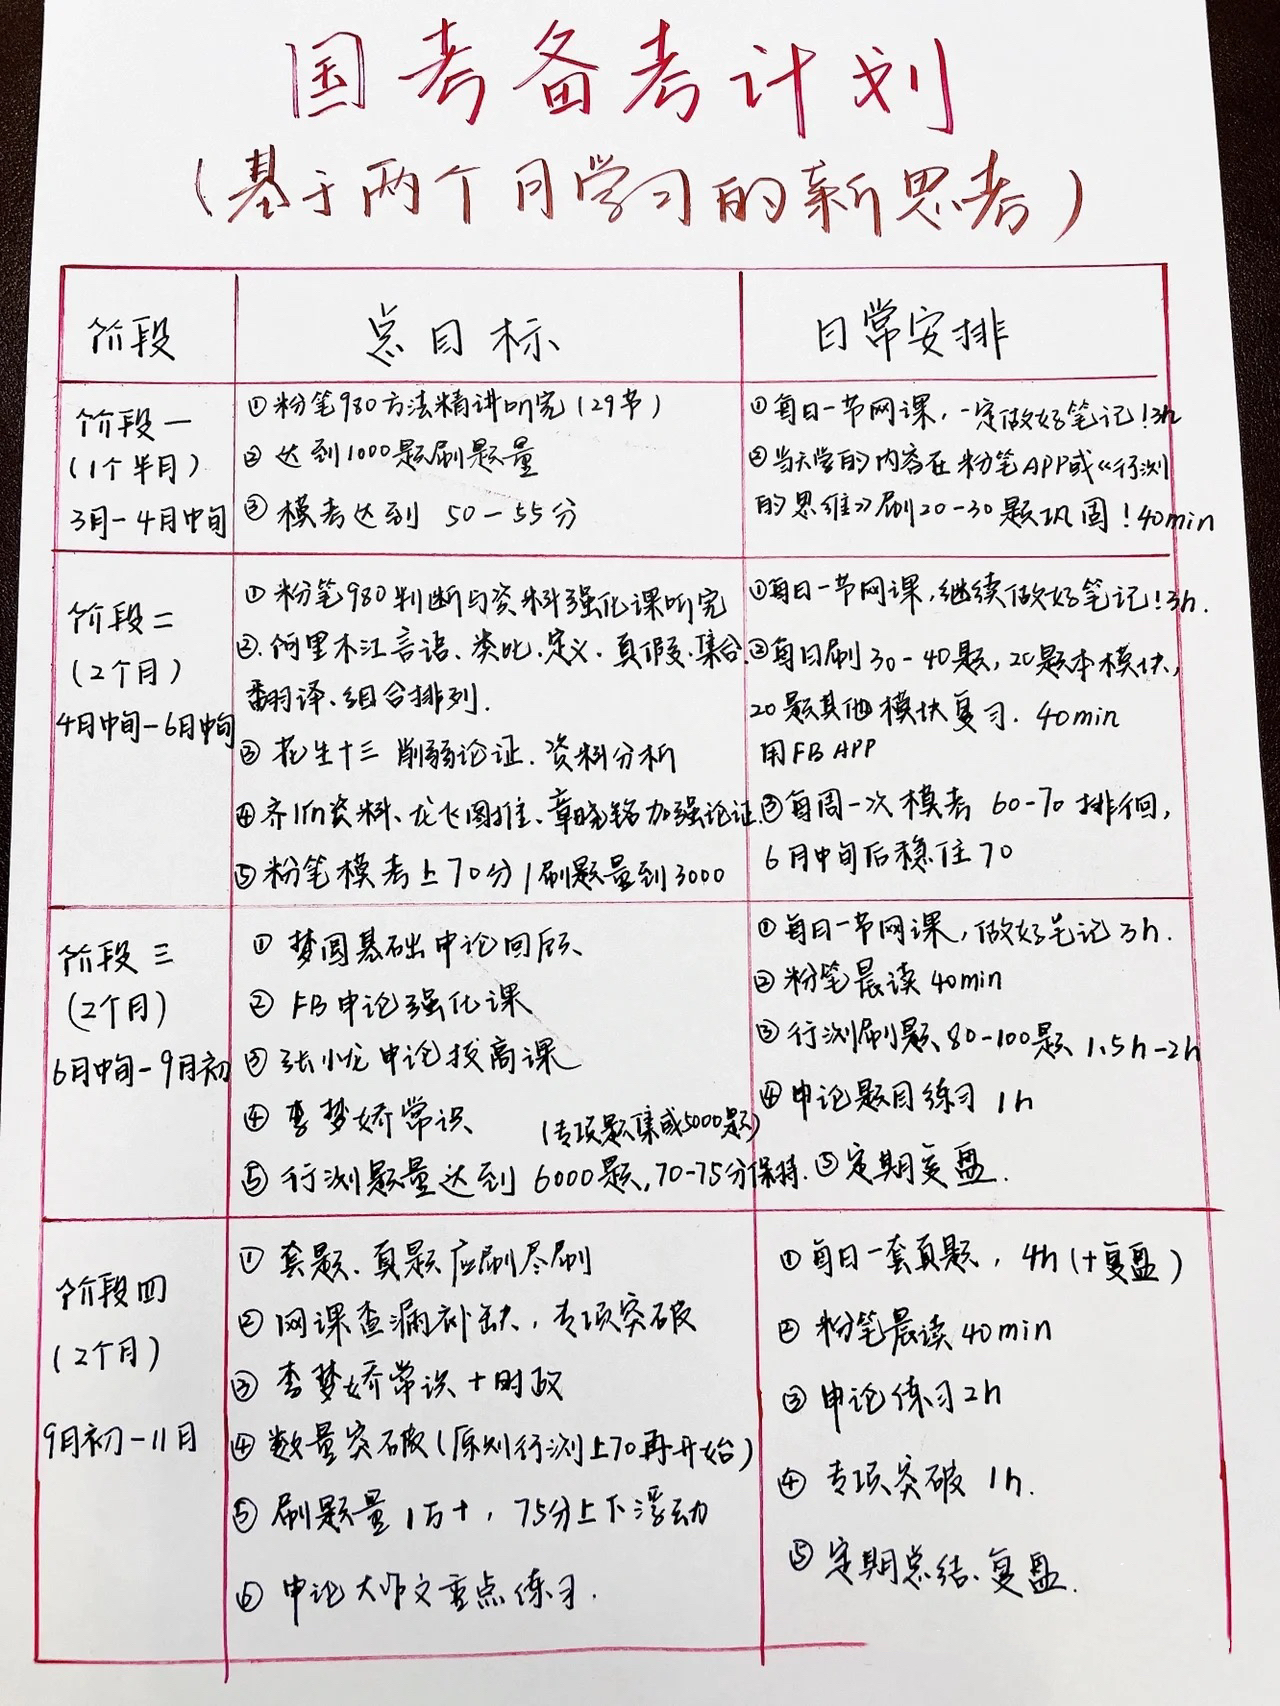 国考备考计划
（基于两个月学习的新思考）
阶段
总目标
日常安排
阶段一
（1个半月）
3月-4月中旬
①粉笔980方法精讲听完（29节）
②达到1000题刷题量
③模考达到 50-55分
①每日一节网课，一定做好笔记！3h
②当天学的内容在粉笔APP或《行测
的思维》刷20-30题巩固！40min
阶段二
（2个月）
4月中旬-6月中旬
①粉笔980判断与资料强化课听完
②.阿里木江言语、类比、定义、真假、集合、
翻译、组合排列.
③花生十三 削弱论证、资料分析
④齐麟资料、龙飞图推、章晓铭加强论证.
⑤粉笔模考上70分/刷题量到3000
①每日一节网课，继续做好笔记！3h.
②每日刷30-40题，20题本模块，
20题其他模块复习. 40min
用FB APP
③每周一次模考 60-70排徊，
6月中旬后稳住70
阶段三
（2个月）
6月中旬-9月初
①梦圆基础申论回顾
②FB申论强化课
③张小龙申论拔高课
④李梦娇常识 （专项题集或5000题）
⑤行测题量达到6000题，70-75分保持.
①每日一节网课，做好笔记3h.
②粉笔晨读40min
③行测刷题80-100题 1.5h-2h
④申论题目练习 1h
⑤定期复盘.
阶段四
（2个月）
9月初-11月
①套题、真题应刷尽刷
②网课查漏补缺，专项突破
③李梦娇常识+时政
④数量突破（原则行测上70再开始）
⑤刷题量1万+，75分上下浮动
⑥申论大作文重点练习.
①每日一套真题，4h（+复盘）
②粉笔晨读40min
③申论练习2h
④专项突破 1h.
⑤定期总结、复盘.